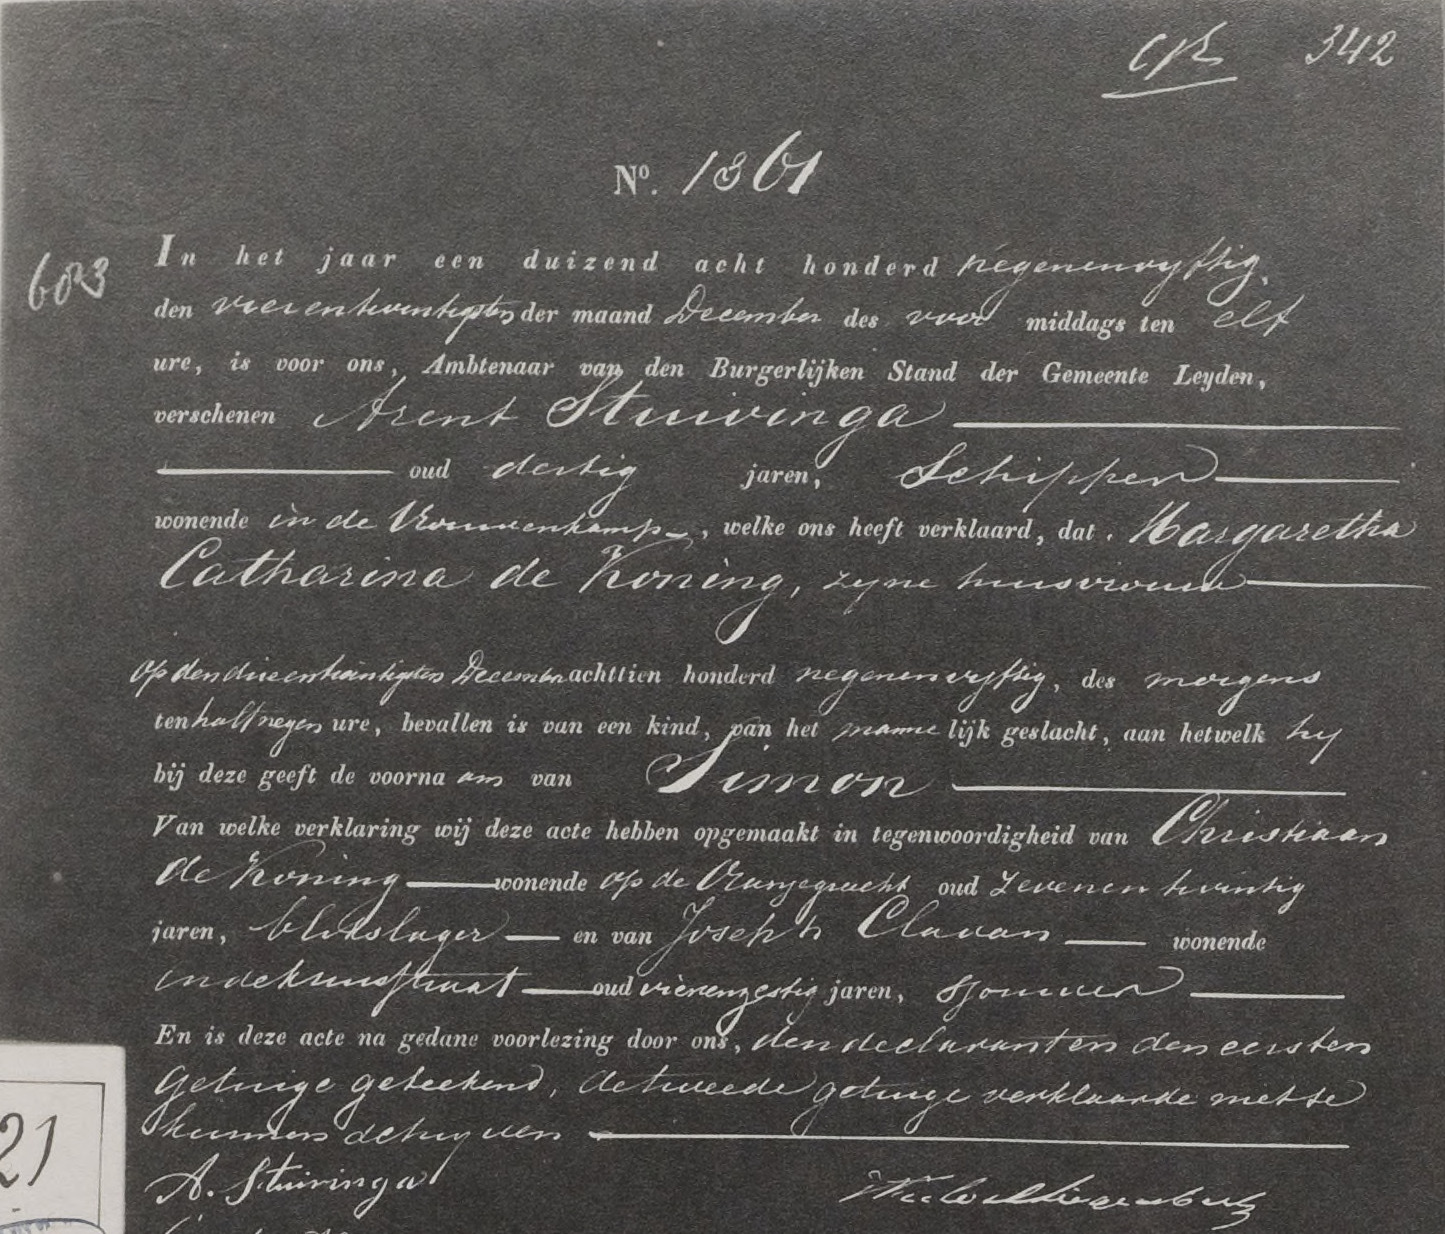 342
N°. 1361
603
In het jaar een duizend acht honderd negenenvyftig,
den vierentwintigsten der maand December des voor middags ten elf
ure, is voor ons, Ambtenaar van den Burgerlijken Stand der Gemeente Leyden,
verschenen Arent Stuivinga
oud dertig jaren, Schipper
wonende in de Vrouwenkamp, welke ons heeft verklaard, dat Margaretha
Catharina de Koning, zyne huisvrouw
op den drieentwintigsten December achttien honderd negenenvyftig, des morgens
ten half negen ure, bevallen is van een kind, van het manne lijk geslacht, aan hetwelk hy
bij deze geeft de voorna am van Simon
Van welke verklaring wij deze acte hebben opgemaakt in tegenwoordigheid van Christiaan
de Koning wonende op de Oranjegracht oud zevenentwintig
jaren, blikslager en van Joseph Clavan wonende
in de oud vierenzestig jaren, sjouwer
En is deze acte na gedane voorlezing door ons, den declarant en den eersten
getuige geteekend, de tweede getuige verklaarde niet te
kunnen schryven
A. Stuivinga
21